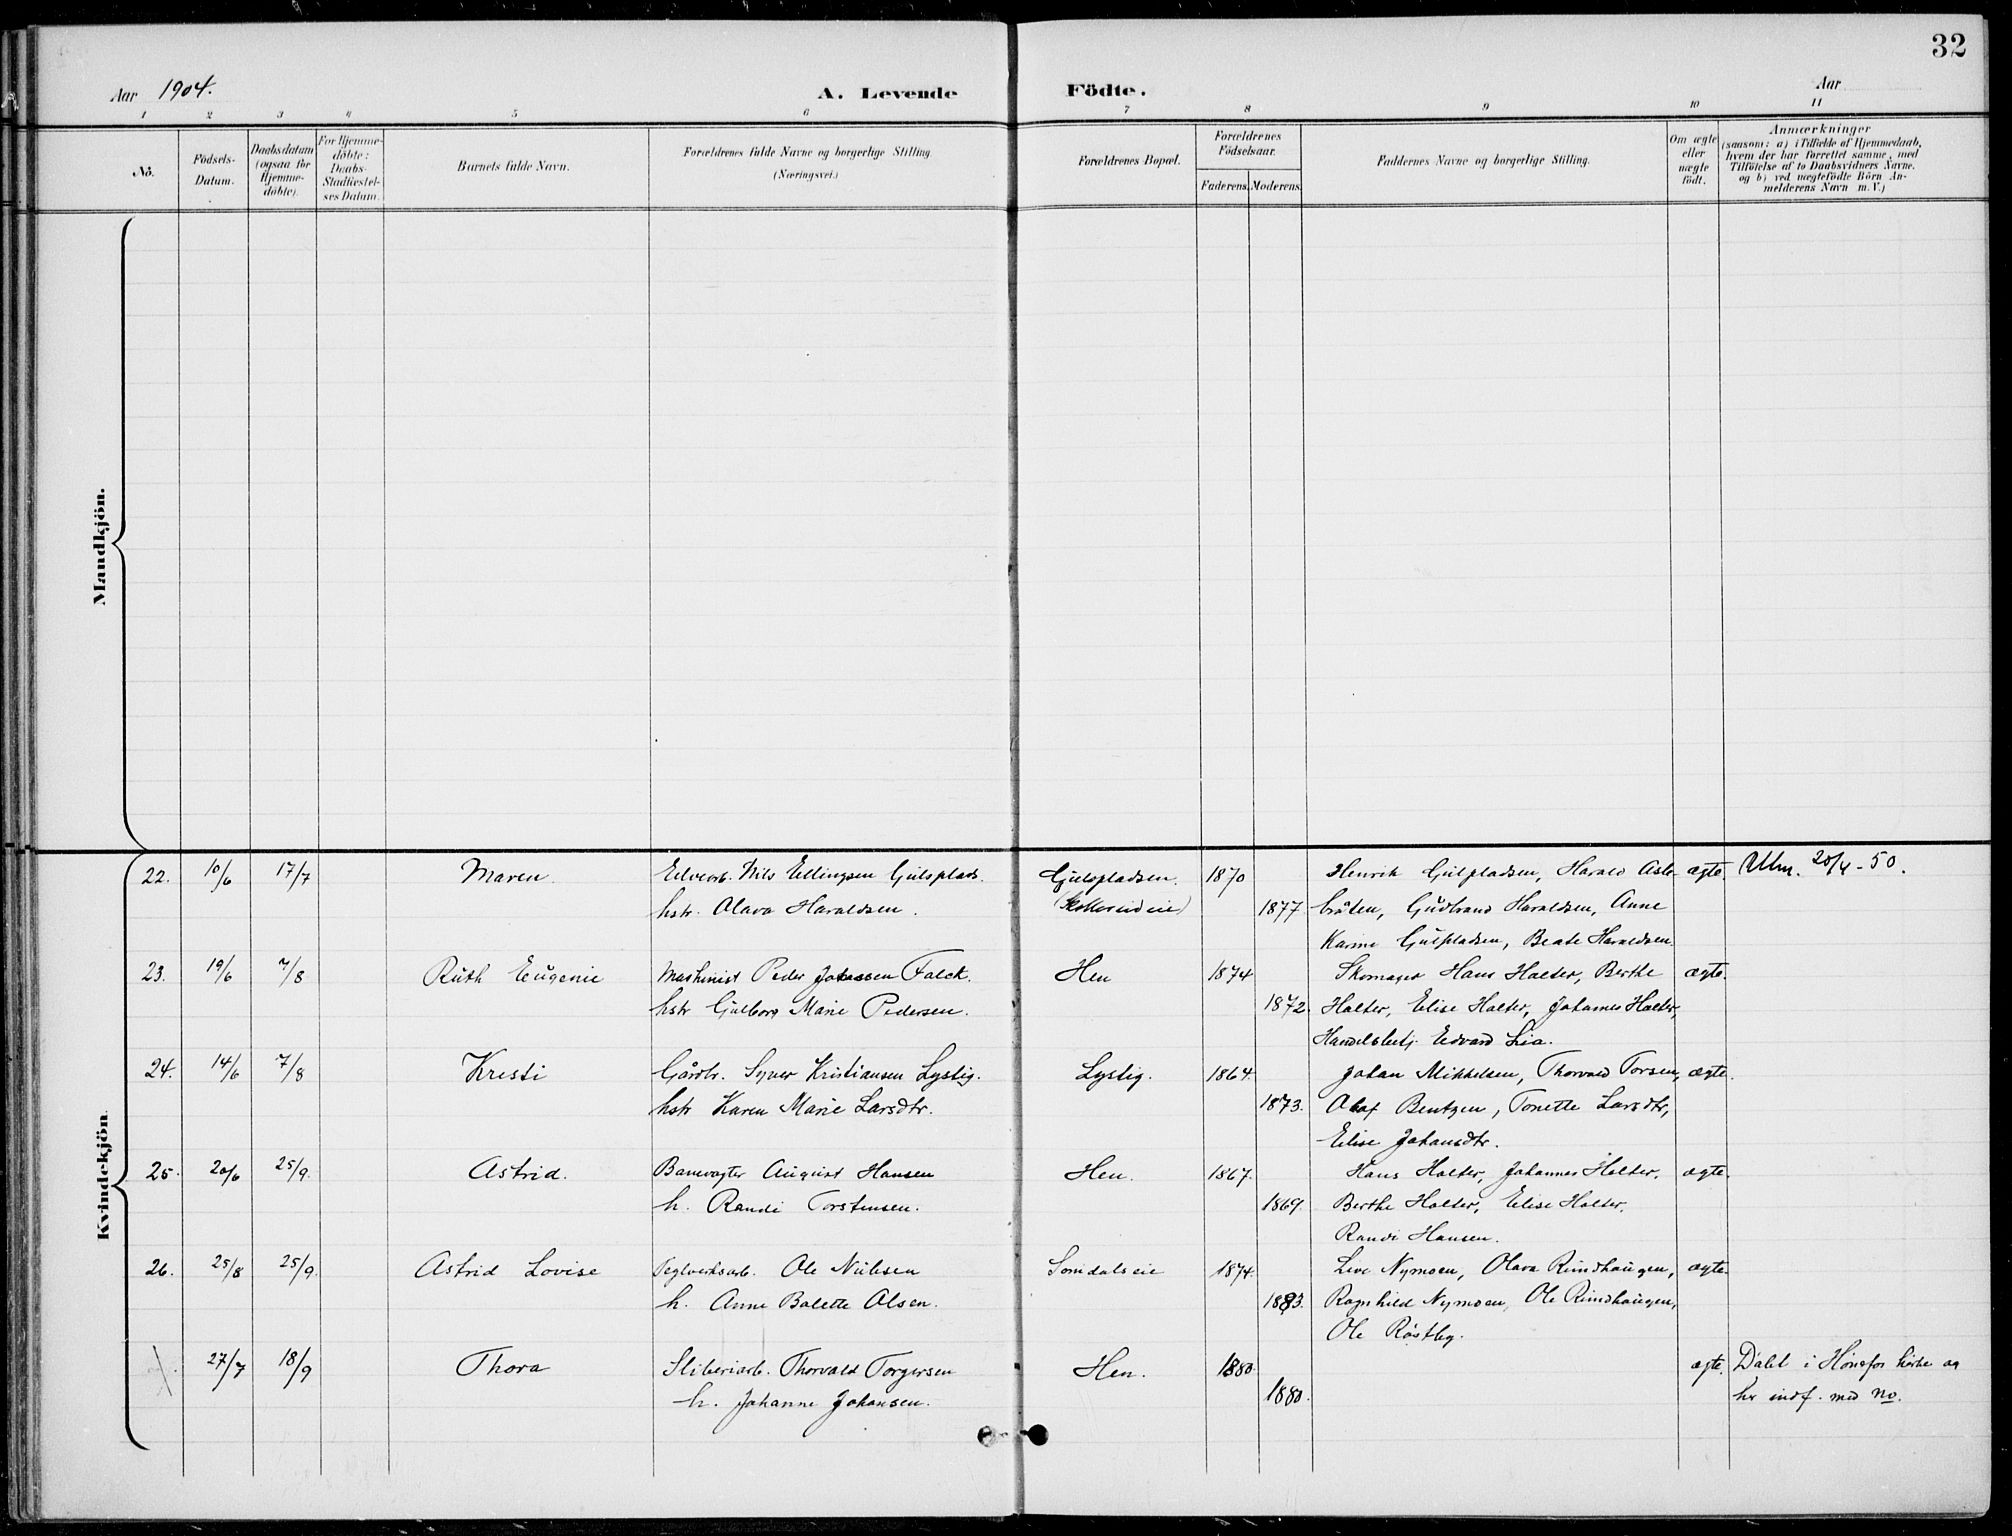 32
Aar 1904.
A. Levende Födte.
Aar
1 2 3 4 5 6 7 8 9 10 11
No.
Födsels-Datum.
Daabsdatum (ogsaa for Hjemme-döbte).
For Hjemme-döbte: Daabs-Stadfæstel-ses Datum.
Barnets fulde Navn.
Forældrenes fulde Navne og borgerlige Stilling
(Næringsvei.)
Forældrenes Bopæl.
Forældrenes Födselsaar.
Faderens. Moderens.
Faddernes Navne og borgerlige Stilling.
Om ægte eller uægte födt.
Anmærkninger
(saasom: a) i Tilfælde af Hjemmedaab,
hvem der har forrettet samme, med
Tilföielse af to Daabsvidners Navne.
og b) ved uægtefödte Börn An-
melderens Navn m. V.)
Mandkjön.
Kvindekjön
22. 10/6 17/7 Maren. Elvearb. Nils Ellingsen Gulsplads. Gulspladsen. 1870 Henrik Gulspladsen, Harald Asle- ægte.
hstr. Olava Haraldsen. 1877 bråten, Gudbrand Haraldsen, Anne
Karine Gulspladsen, Beate Haraldsen.
20/4-50.
23. 19/6 7/8 Ruth Eugenie Maskinist Peder Johansen Falck. Hen 1874 Skomager Hans Halter, Berthe ægte.
hstr Gulborg Marie Pedersen. 1872. Halter, Elise Halter, Johannes Halter,
Handelsbetj. Edvard Lia.
24. 14/6 7/8 Kresti Gårdbr. Syver Kristiansen Lystig. Lystig. 1864. Johan Mikkelsen, Thorvald Torsen, ægte.
hstr Karen Marie Larsdtr. 1873. Olaf Bentzen, Tonette Larsdtr,
Elise Johansdtr.
25. 20/6 25/9. Astrid. Banevogter August Hansen Hen. 1867. Hans Halter, Johannes Halter. ægte.
h. Randi Torstensen. 1869. Berthe Halter, Elise Halter.
Randi Hansen.
26. 25/8 25/9. Astrid Lovise Teglverksarb. Ole Nielsen Somdalseie 1874. Nymoen, Olava Rundhaugen, ægte.
h. Anne Balette Olsen. 1883. Ragnhild Nymoen, Ole Rundhaugen,
Ole Røstbg.
27/7 18/9 Thora Sliberiarb. Thorvald Torgersen Hen. 1880 ægte. Döbt i Hønefos kirke og
h. Johanne Johansen. 1880. her indf. med no.